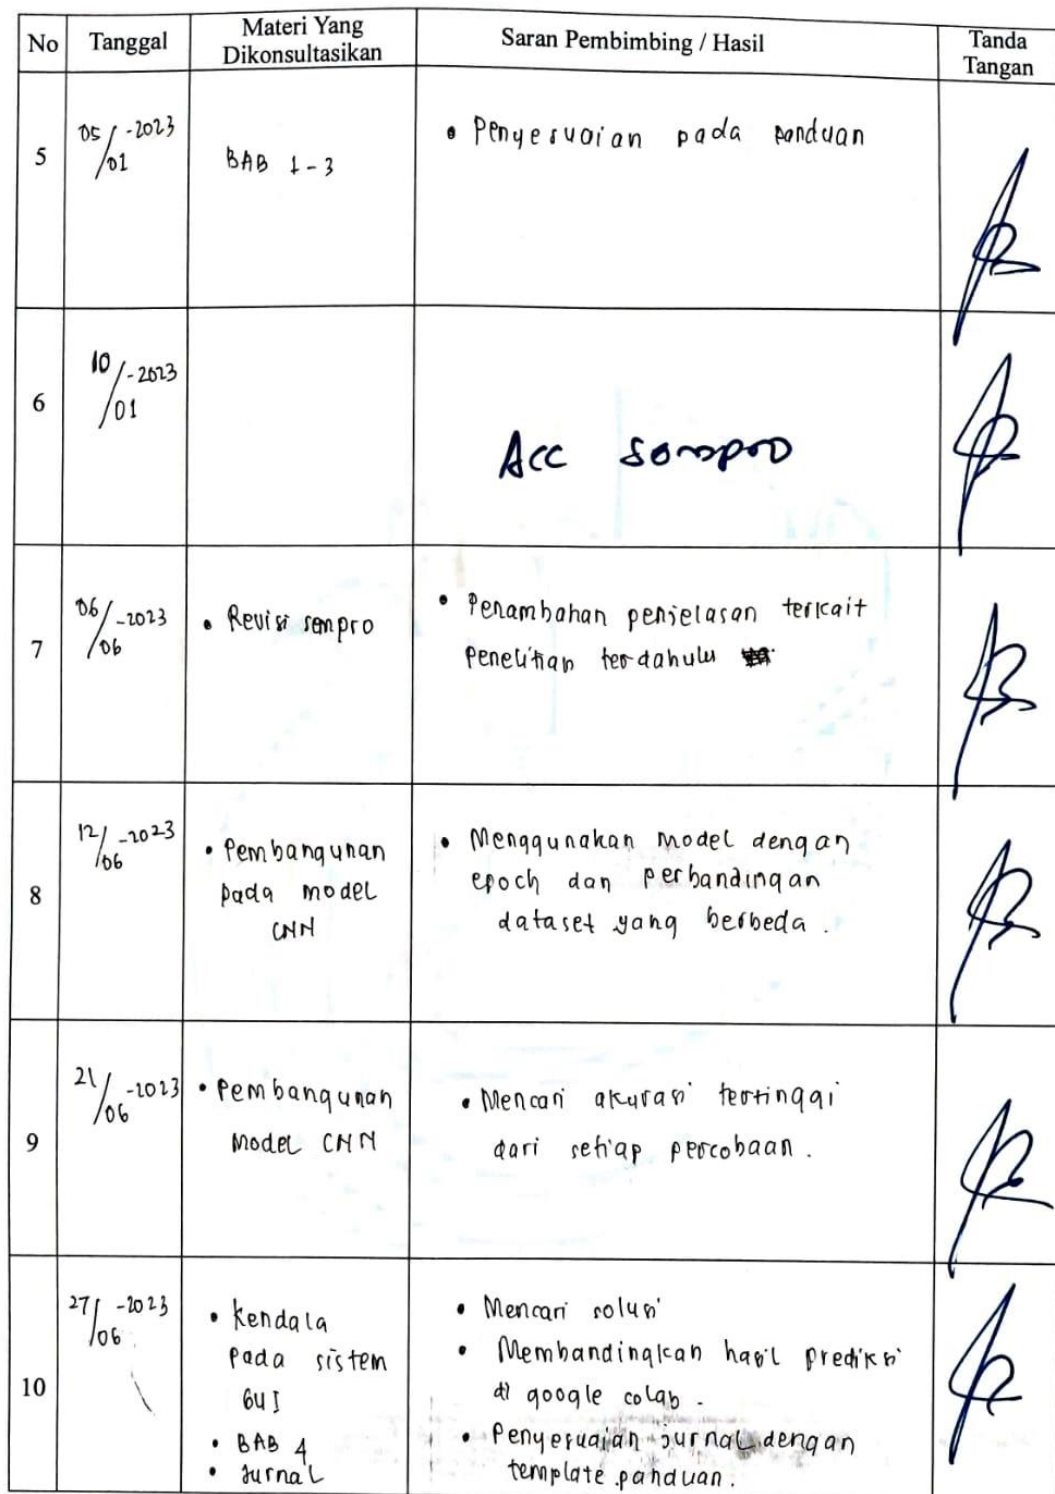 No
Tanggal
Materi Yang
Dikonsultasikan
Saran Pembimbing / Hasil
Tanda
Tangan
5
05/01-2023
BAB 1-3
• Penyesuaian pada panduan
6
10/01-2023
Acc sempro
7
06/06-2023
• Revisi sempro
• Penambahan penjelasan terkait
penelitian terdahulu
8
12/06-2023
• Pembangunan
pada model
CNN
• Menggunakan model dengan
epoch dan perbandingan
dataset yang berbeda.
9
21/06-2023
• Pembangunan
Model CNN
• Mencari akurasi tertinggi
dari setiap percobaan.
10
27/06-2023
• Kendala
pada sistem
GUI
• BAB 4
• Jurnal
• Mencari solusi
• Membandingkan hasil prediksi
di google colab.
• Penyesuaian jurnal dengan
template panduan.